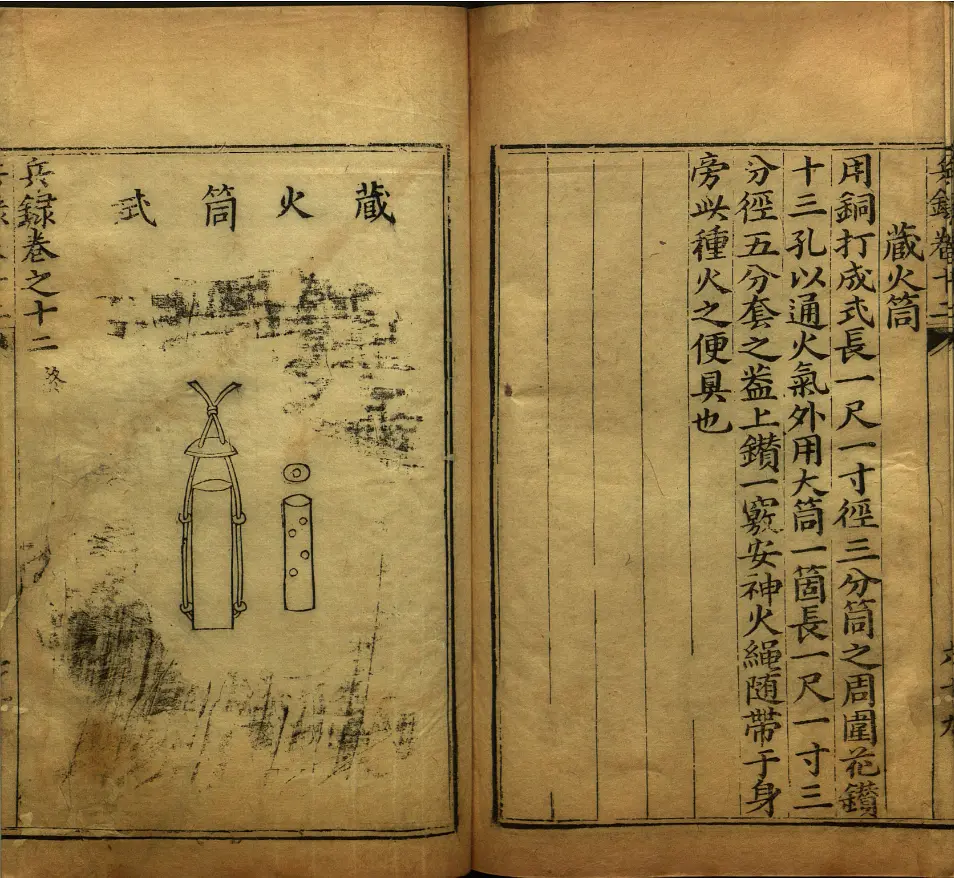 兵録卷十二
藏火筒
用銅打成式長一尺一寸徑三分筒之周圍花鑽
十三孔以通火氣外用大筒一箇長一尺一寸三
分徑五分套之葢上鑽一竅安神火繩随帶于身
旁此種火之便具也
藏火筒式
兵録卷之十二 終